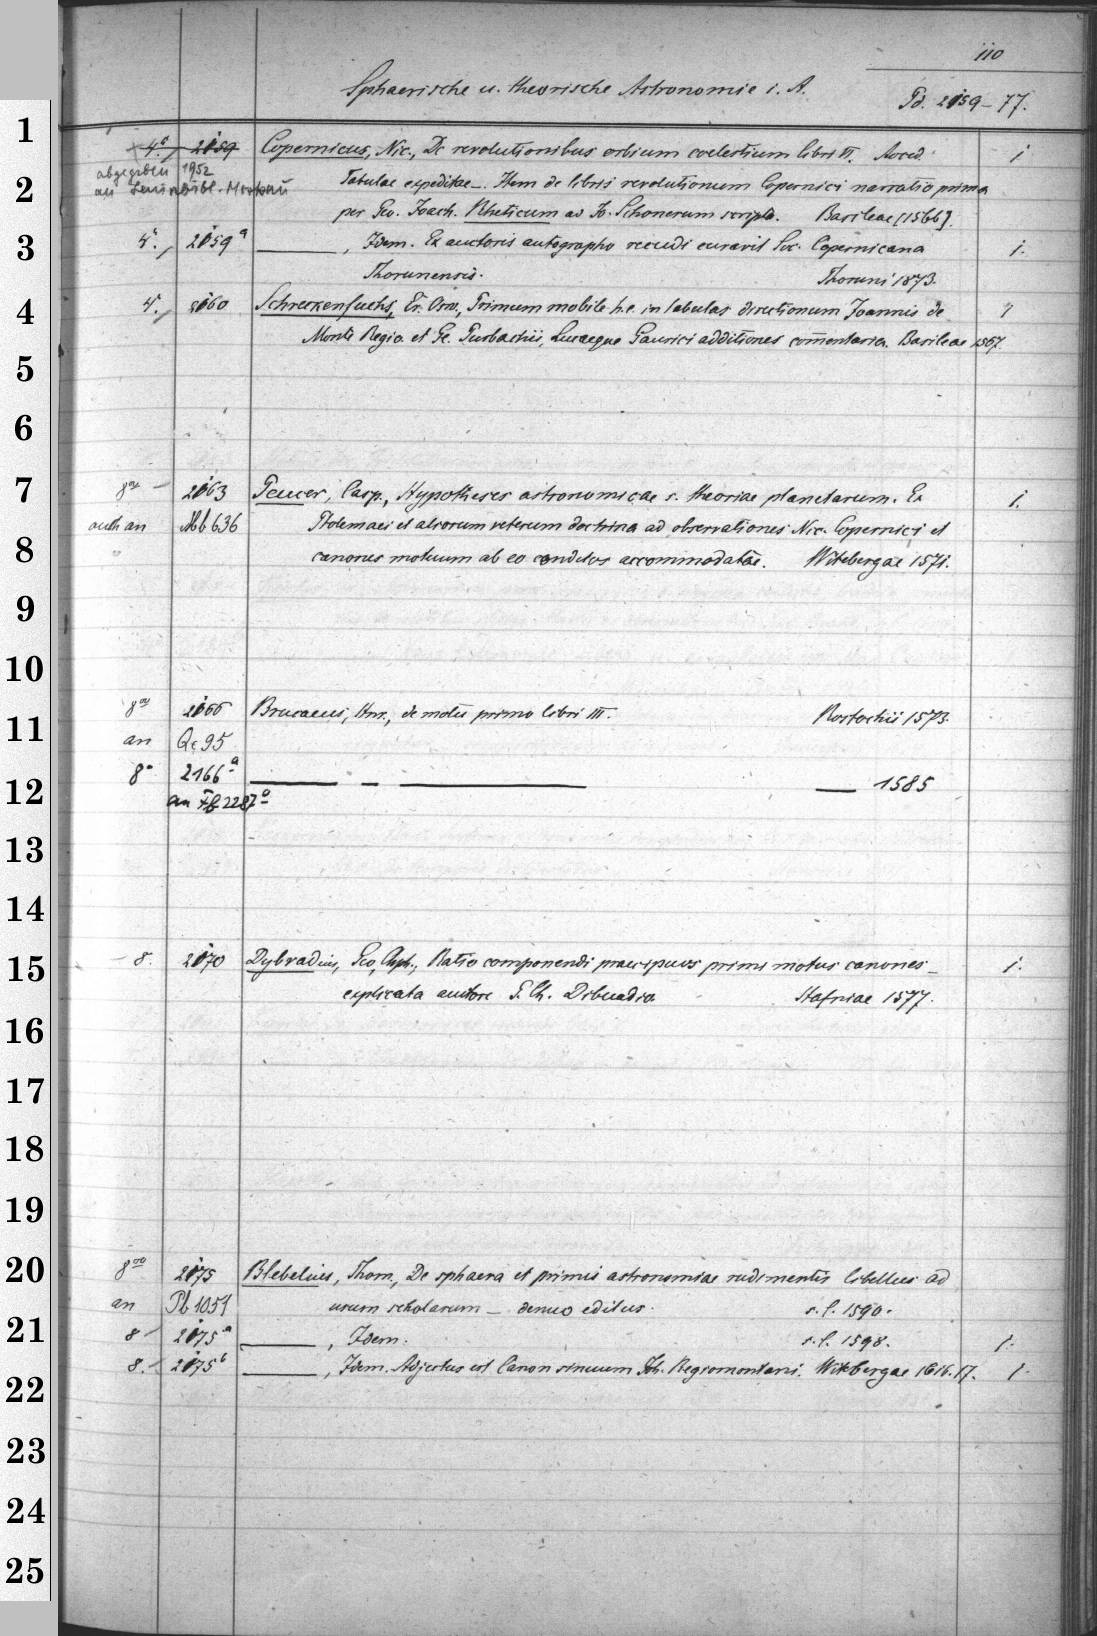 110
Sphaerische u. theorische Astronomie i. A.
Pd. 2159–77.
1
4° 2159 Copernicus, Nic., De revolutionibus orbium coelestium libri VI. Acced. 1
abgegeben 1952
2
an Leninbibl. Moskau Tabulae expeditae –. Item de libris revolutionum Copernici narratio prima
per Geo. Joach. Rheticum ad Jo. Schonerum scripta. Basileae [1566].
3
4°. 2159a ———, Idem. Ex auctoris autographo recudi curavit Soc. Copernicana 1.
Thorunensis. Thoruni 1873.
4
4°. 2160 Schreckenfuchs, Er. Osw., Primum mobile h.e. in tabulas directionum Joannis de 1
Monte Regio et Ge. Purbachii, Lucaeque Gaurici additiones commentaria. Basileae 1567.
5
6
7
8vo – 2163 Peucer, Casp., Hypotheses astronomicae s. theoriae planetarum. Ex 1.
auch an Mb 636 Ptolemaei et aliorum veterum doctrina ad observationes Nic. Copernici et
8
" canones motuum ab eo conditos accommodatae. Witebergae 1571.
9
10
8vo 2166 Brucaeus, Hnr., de motu primo libri III. Rostochii 1573.
11
an Qc 95
8° 2166a ——— — ——— — 1585
12
an 2287a
13
14
15
– 8. 2170 Dybvadius, Geo. Chph., Ratio componendi praecipuos primi motus canones – 1.
explicata auctore G. Ch. Dibuadio Hafniae 1577.
16
17
18
19
20
8vo 2175 Blebelius, Thom., De sphaera et primis astronomiae rudimentis libellus ad
an Pb 1051 usum scholarum – denuo editus. s. l. 1590.
21
8 – 2175a ———, Idem. s. l. 1598. 1.
8. – 2175b ———, Idem. Adjectus est Canon sinuum Joh. Regiomontani. Witebergae 1616. 17. 1.
22
23
24
25